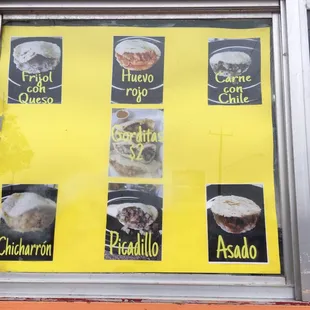 Frijol
con
Queso
Huevo
rojo
Carne
con
Chile
Gorditas
$2
Chicharrón
Picadillo
Asado